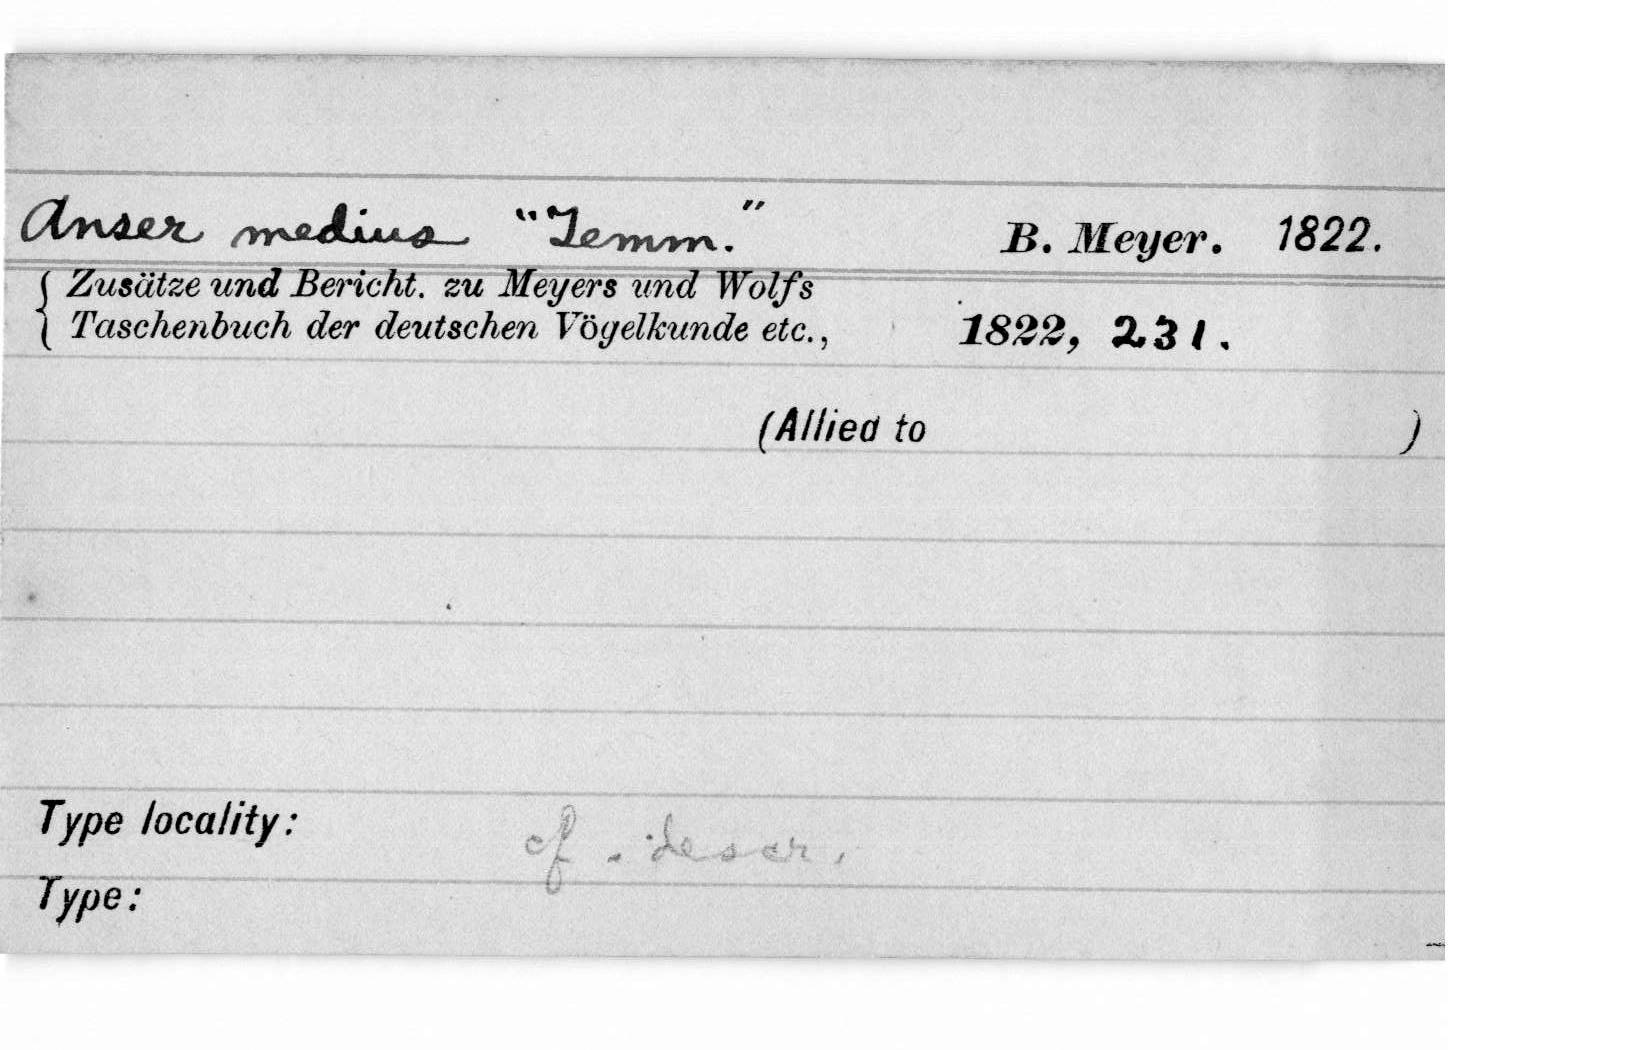 Anser medius "Temm." B. Meyer. 1822.
{ Zusätze und Bericht. zu Meyers und Wolfs
{ Taschenbuch der deutschen Vögelkunde etc., 1822, 231.
(Allied to )
Type locality: cf. descr.
Type: